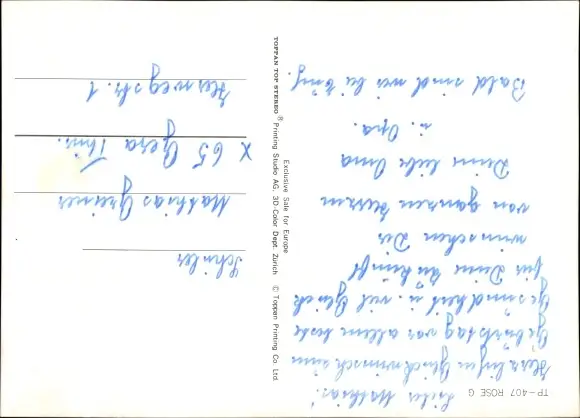 TP-407 ROSE G
Lieber Mathias!
Herzlichen Glückwunsch zum
Geburtstag vor allem beste
Gesundheit u. viel Glück
für Deine Zukunft
wünschen Dir
von ganzem Herzen
Deine liebe Oma
u. Opa.
Bald sind wir bei Dir.
Exclusive Sale for Europe
TOPPAN TOP STEREO ® Printing Studio AG, 3D-Color Dept. Zürich © Toppan Printing Co. Ltd.
Schüler
Mathias Greiner
X 65 Gera Thür.
Herwegstr. 1